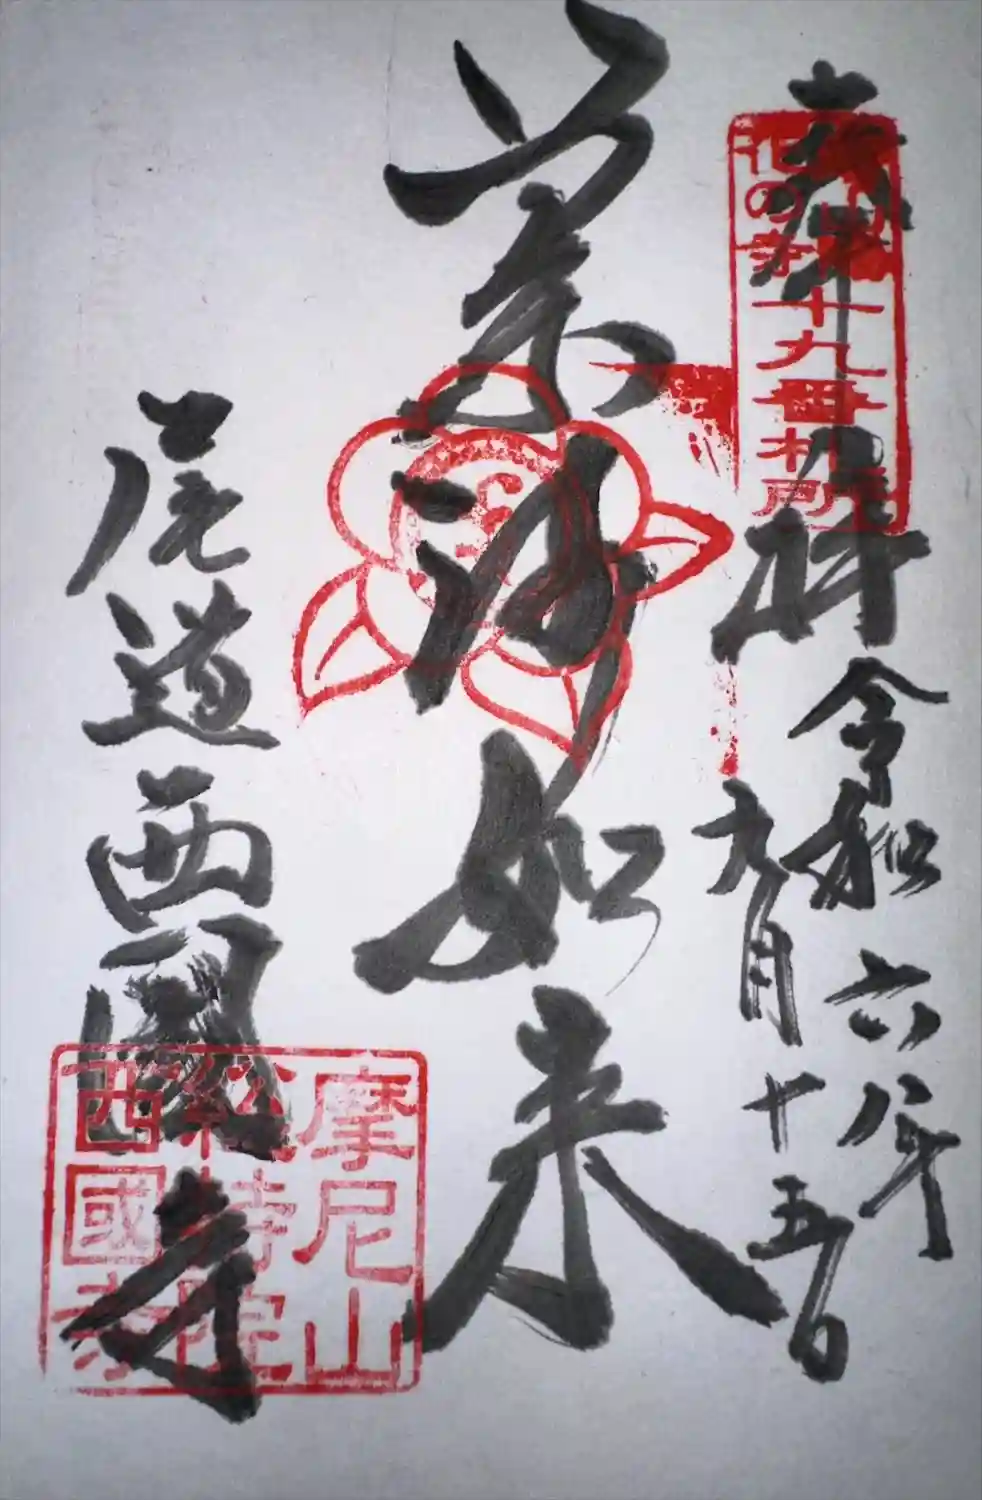 奉拝
令和六年
九月十五日
十九番札所
花の寺
薬師如来
尾道西國寺
摩尼山
総持院
西國寺